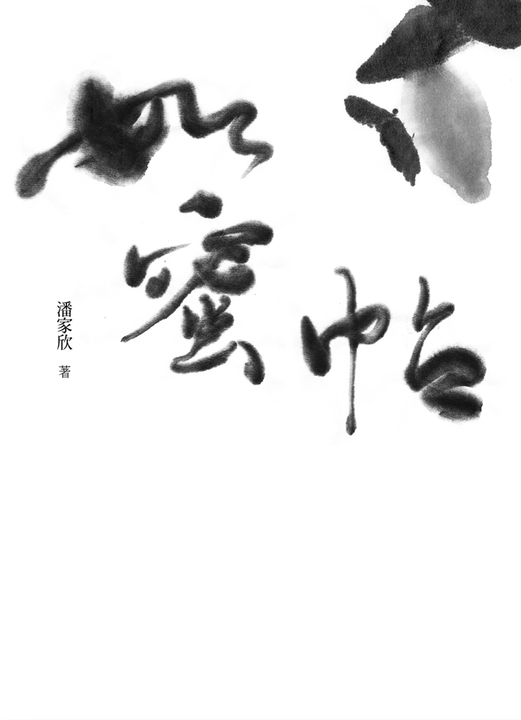 如
蜜
帖
潘家欣 著